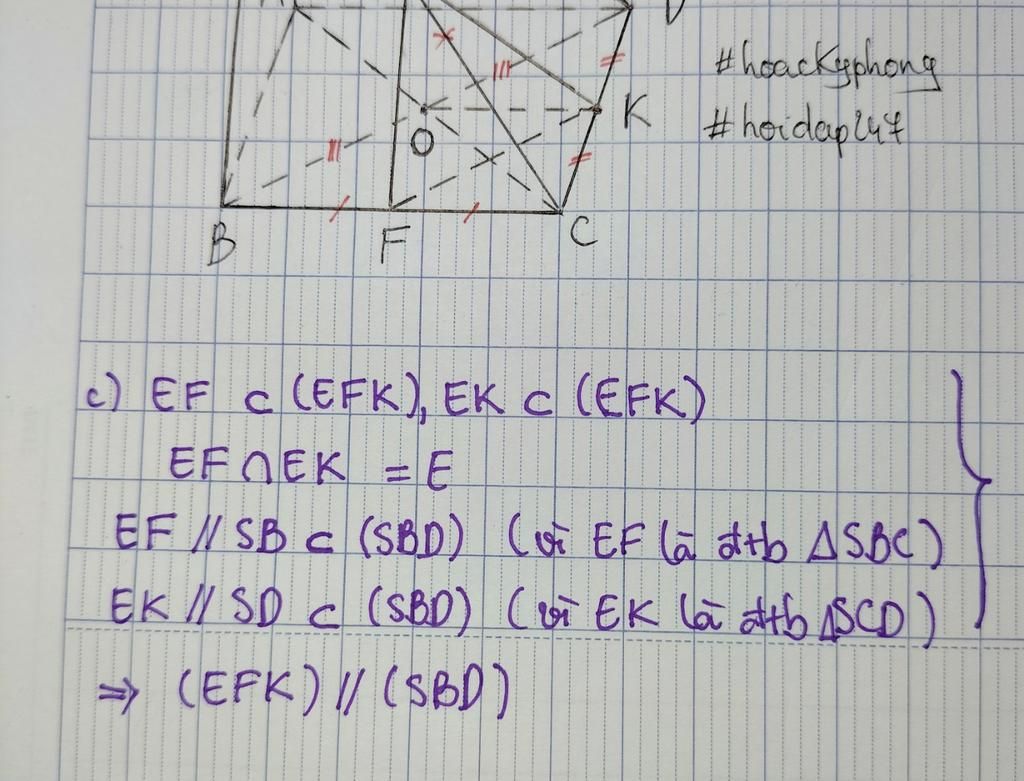 #hoackyphong
K
#hoidap247
O
B
F
C
c) EF ⊂ (EFK), EK ⊂ (EFK)
EF ∩ EK = E
EF // SB ⊂ (SBD) (vì EF là đtb ΔSBC)
EK // SD ⊂ (SBD) (vì EK là đtb ΔSCD)
⇒ (EFK) // (SBD)